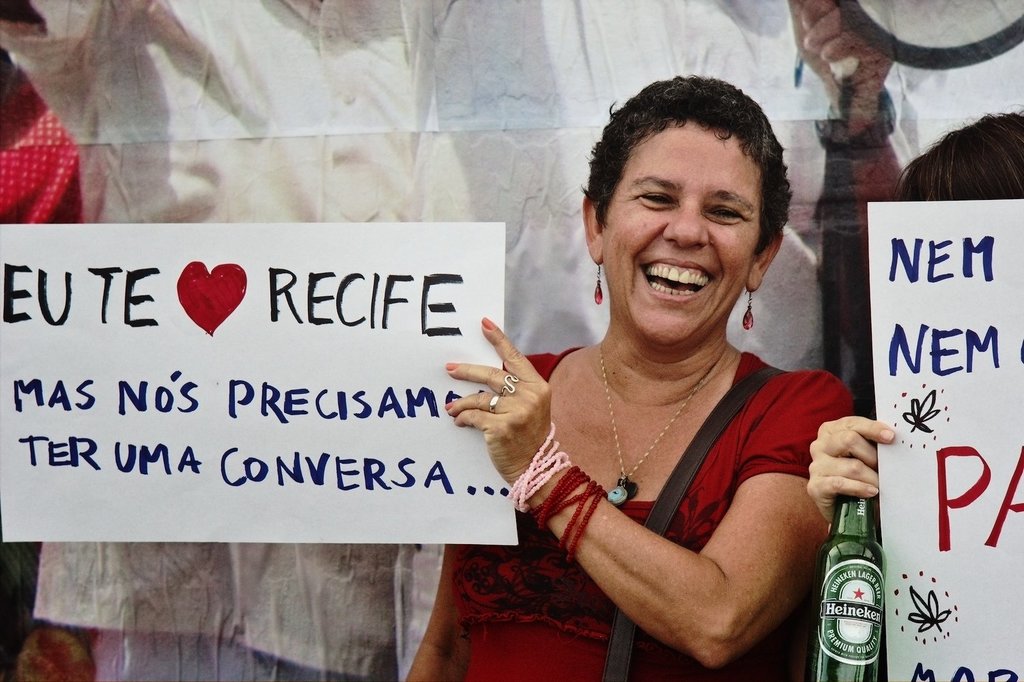 EU TE ❤ RECIFE
MAS NÓS PRECISAM
TER UMA CONVERSA...
NEM
NEM
PA
HEINEKEN LAGER BEER
Heineken
PREMIUM QUALITY